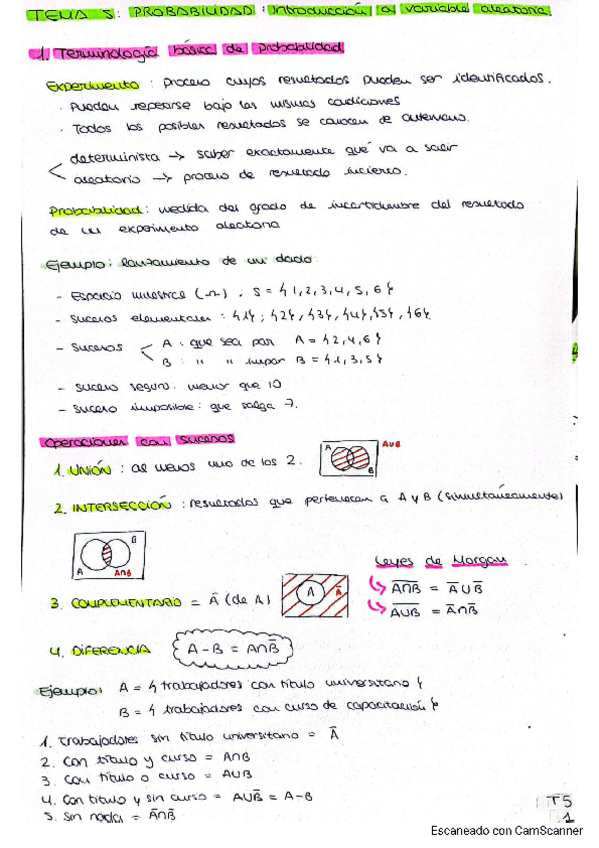 TEMA 5: PROBABILIDAD: Introducción a variable aleatoria.
1. Terminología básica de probabilidad
Experimento: proceso cuyos resultados pueden ser identificados.
· Pueden repetirse bajo las mismas condiciones
· Todos los posibles resultados se conocen de antemano.
determinista → saber exactamente qué va a salir
aleatorio → proceso de resultado incierto.
Probabilidad: medida del grado de incertidumbre del resultado
de un experimento aleatorio
Ejemplo: lanzamiento de un dado
- Espacio muestral (Ω), S = {1,2,3,4,5,6}
- Sucesos elementales: {1}; {2}, {3}, {4}, {5}, {6}.
- Sucesos
A: que sea par A = {2,4,6}
B: " " impar B = {1,3,5}
- Suceso seguro: menor que 10
- Suceso imposible: que salga 7.
Operaciones con sucesos
1. UNIÓN: al menos uno de los 2.
A B A∪B
2. INTERSECCIÓN: resultados que pertenezcan a A y B (simultáneamente)
A B A∩B
Leyes de Morgan
A̅∩̅B̅ = A̅∪B̅
A̅∪̅B̅ = A̅∩B̅
3. COMPLEMENTARIO = A̅ (de A)
A A̅
4. DIFERENCIA
A - B = A∩B̅
Ejemplo: A = { trabajadores con título universitario }
B = { trabajadores con curso de capacitación }
1. Trabajadores sin título universitario = A̅
2. Con título y curso = A∩B
3. Con título o curso = A∪B
4. Con título y sin curso = A∪B̅ = A-B
5. Sin nada = A̅∩B̅
T5
1
Escaneado con CamScanner